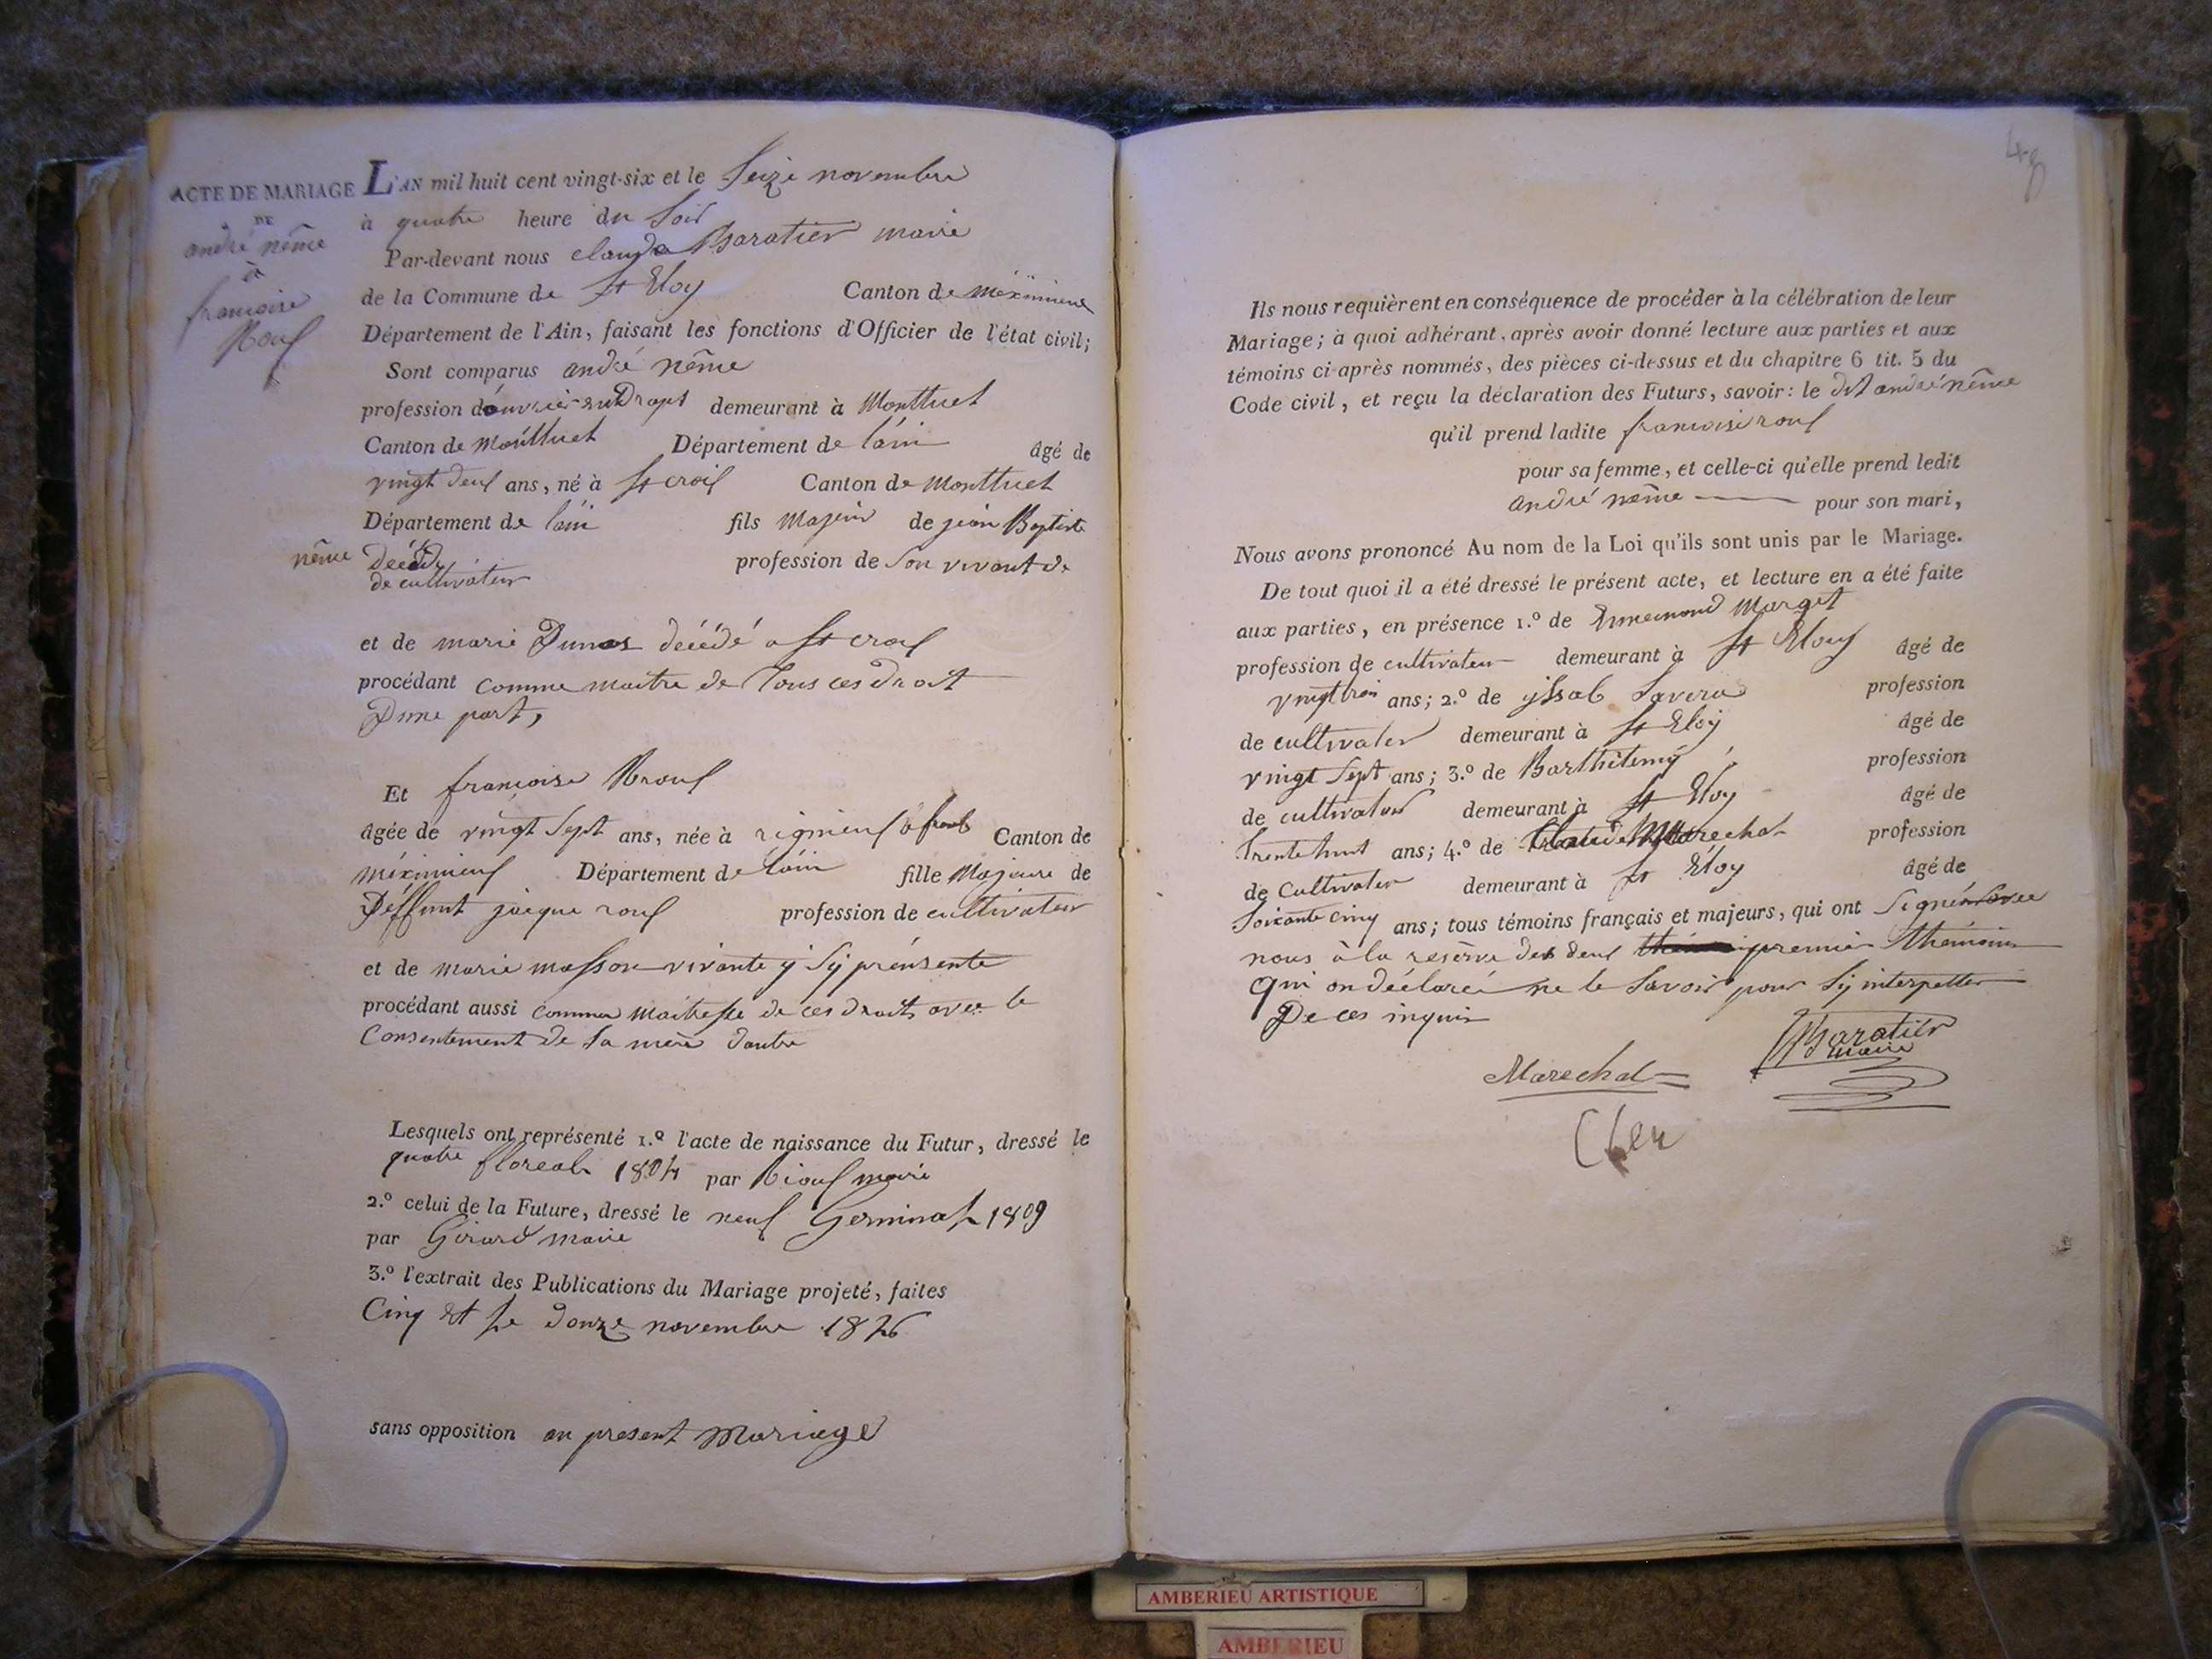 ACTE DE MARIAGE
DE
andré nême
à
francoise
Rouf
L'AN mil huit cent vingt-six et le Seize novembre
à quatre heure du Soir
Par-devant nous claude Baratier maire
de la Commune de St Eloy Canton de méximieux
Département de l'Ain, faisant les fonctions d'Officier de l'état civil;
Sont comparus andré nême
profession d'ouvrier en Draps demeurant à Montluel
Canton de Montluel Département de l'ain âgé de
vingt deux ans, né à St croix Canton de Montluel
Département de l'ain fils Majeur de jean Baptiste
nême Décédé profession de Son vivant de
de cultivateur
et de marie décédé a St croix
procédant comme maitre de Tous ces droit
Dune part,
Et francoise Roux
âgée de vingt Sept ans, née à rignieux Canton de
méximieux Département de l'ain fille Majeure de
Deffunt jacque roux profession de cultivateur
et de marie masson vivante y Sy présente
procédant aussi comme maitresse de ces droits avec le
Consentement de Sa mère dautre
Lesquels ont représenté 1.º l'acte de naissance du Futur, dressé le
quatre floreal 1804 par maire
2.º celui de la Future, dressé le neuf Germinal 1809
par Girard maire
3.º l'extrait des Publications du Mariage projeté, faites
Cinq et le douze novembre 1826
sans opposition au present Mariage
48
Ils nous requièrent en conséquence de procéder à la célébration de leur
Mariage; à quoi adhérant, après avoir donné lecture aux parties et aux
témoins ci-après nommés, des pièces ci-dessus et du chapitre 6 tit. 5 du
Code civil, et reçu la déclaration des Futurs, savoir: le dit andré nême
qu'il prend ladite francoise roux
pour sa femme, et celle-ci qu'elle prend ledit
andré nême pour son mari,
Nous avons prononcé Au nom de la Loi qu'ils sont unis par le Mariage.
De tout quoi il a été dressé le présent acte, et lecture en a été faite
aux parties, en présence 1.º de Ennemond Marget
profession de cultivateur demeurant à St Eloy âgé de
vingt trois ans; 2.º de profession
de cultivateur demeurant à St Eloy âgé de
vingt Sept ans; 3.º de Barthélemy profession
de cultivateur demeurant à St Eloy âgé de
Trente huit ans; 4.º de Claude Marechal profession
de Cultivateur demeurant à St Eloy âgé de
Soixante cinq ans; tous témoins français et majeurs, qui ont Signé avec
nous à la reserve des deux premier thémoins
qui on déclaré ne le Savoir pour Sy interpetter
De ces inquis
Marechal
Baratier
maire
AMBERIEU ARTISTIQUE
AMBERIEU